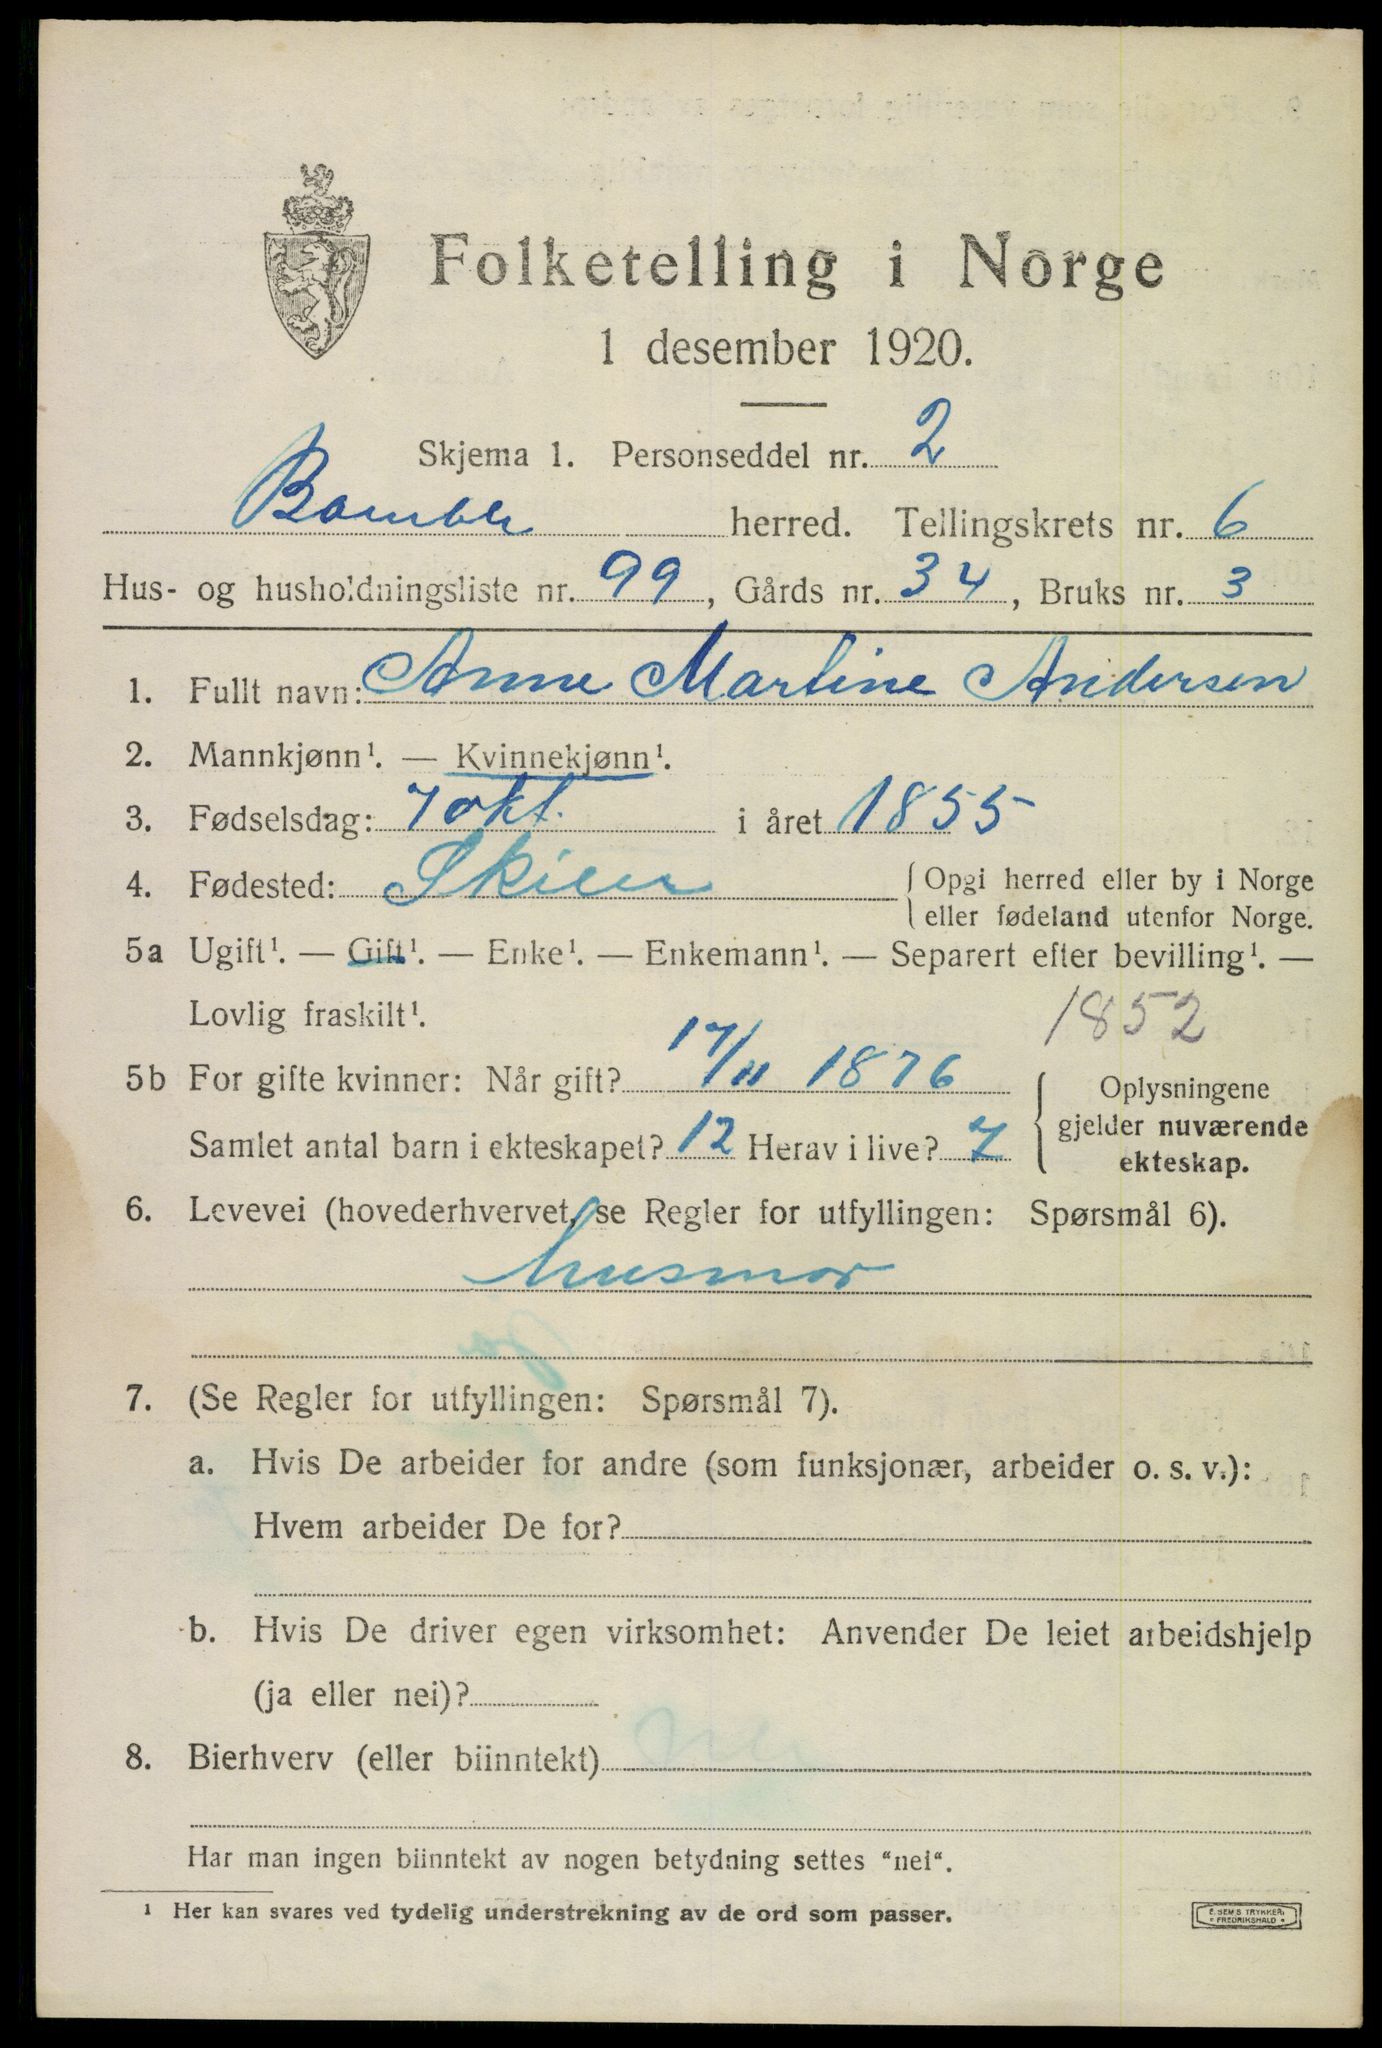 Folketelling i Norge
1 desember 1920.
Skjema 1. Personseddel nr. 2
Bamble herred. Tellingskrets nr. 6
Hus- og husholdningsliste nr. 99, Gårds nr. 34, Bruks nr. 3
1. Fullt navn: Anne Martine Andersen
2. Mannkjønn¹. — Kvinnekjønn¹.
3. Fødselsdag: 7 okt. i året 1855
4. Fødested: Skien {Opgi herred eller by i Norge
eller fødeland utenfor Norge.
5a Ugift¹. — Gift¹. — Enke¹. — Enkemann¹. — Separert efter bevilling¹. —
Lovlig fraskilt¹.
1852
5b For gifte kvinner: Når gift? 17/11 1876
Samlet antal barn i ekteskapet? 12 Herav i live? 7
{Oplysningene
gjelder nuværende
ekteskap.
6. Levevei (hovederhvervet, se Regler for utfyllingen: Spørsmål 6).
husmor
7. (Se Regler for utfyllingen: Spørsmål 7).
a. Hvis De arbeider for andre (som funksjonær, arbeider o. s. v.):
Hvem arbeider De for?
b. Hvis De driver egen virksomhet: Anvender De leiet arbeidshjelp
(ja eller nei)?
8. Bierhverv (eller biinntekt)
Har man ingen biinntekt av nogen betydning settes "nei".
¹ Her kan svares ved tydelig understrekning av de ord som passer.
E. SEMS TRYKKERI
FREDRIKSHALD